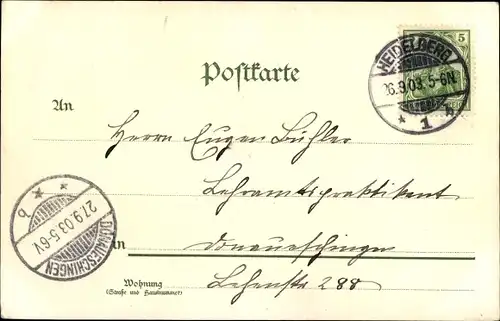 5
HEIDELBERG
26.9.03. 5-6N.
* 1 b
Postkarte
An
Herrn Eugen Bühler
Lehramtspraktikant
b * *
27.9.03. 5-6V.
DONAUESCHINGEN
in Donaueschingen
Wohnung
(Straße und Hausnummer)
Lehenstr 288